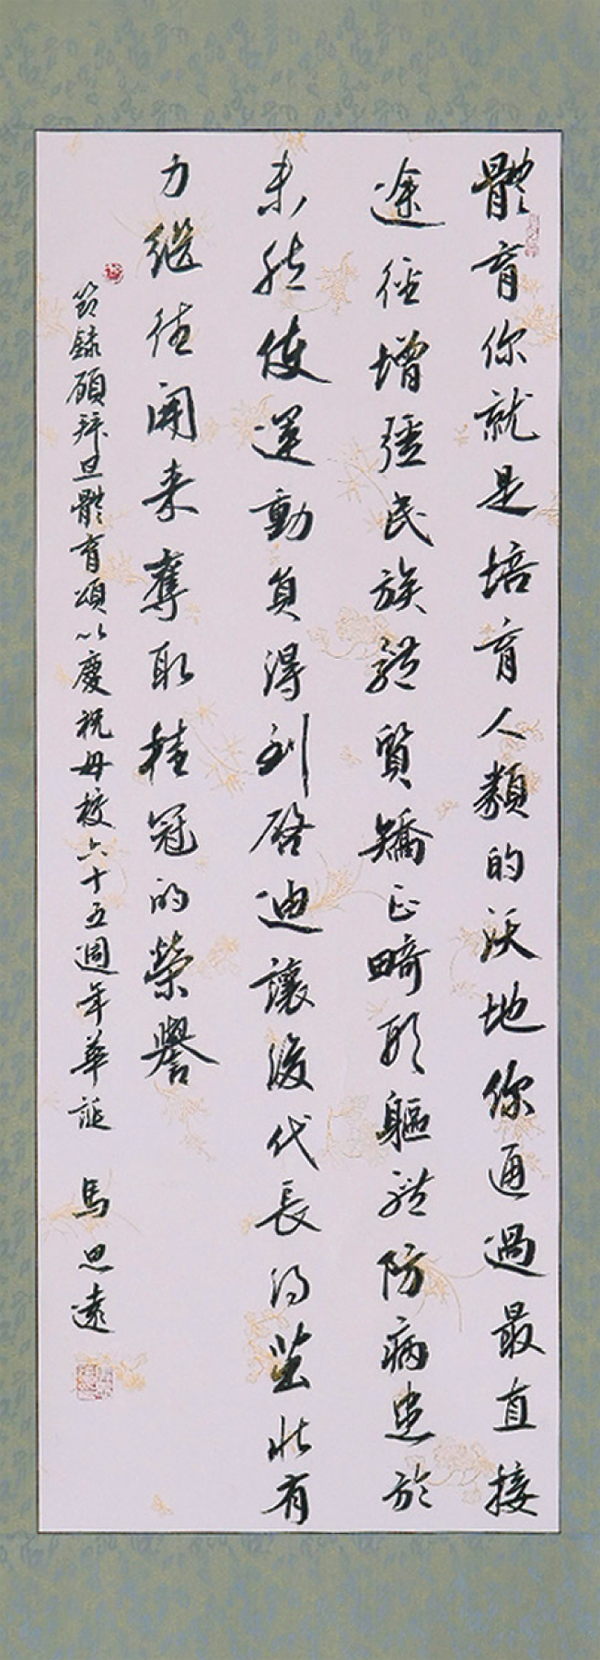 體育你就是培育人類的沃地你通過最直接
途徑增強民族體質矯正畸形軀體防病患於
未然使運動員得到啓迪讓後代長得茁壯有
力繼往開來奪取桂冠的榮譽
節錄顧拜旦體育頌以慶祝母校六十五週年華誕 馬思遠